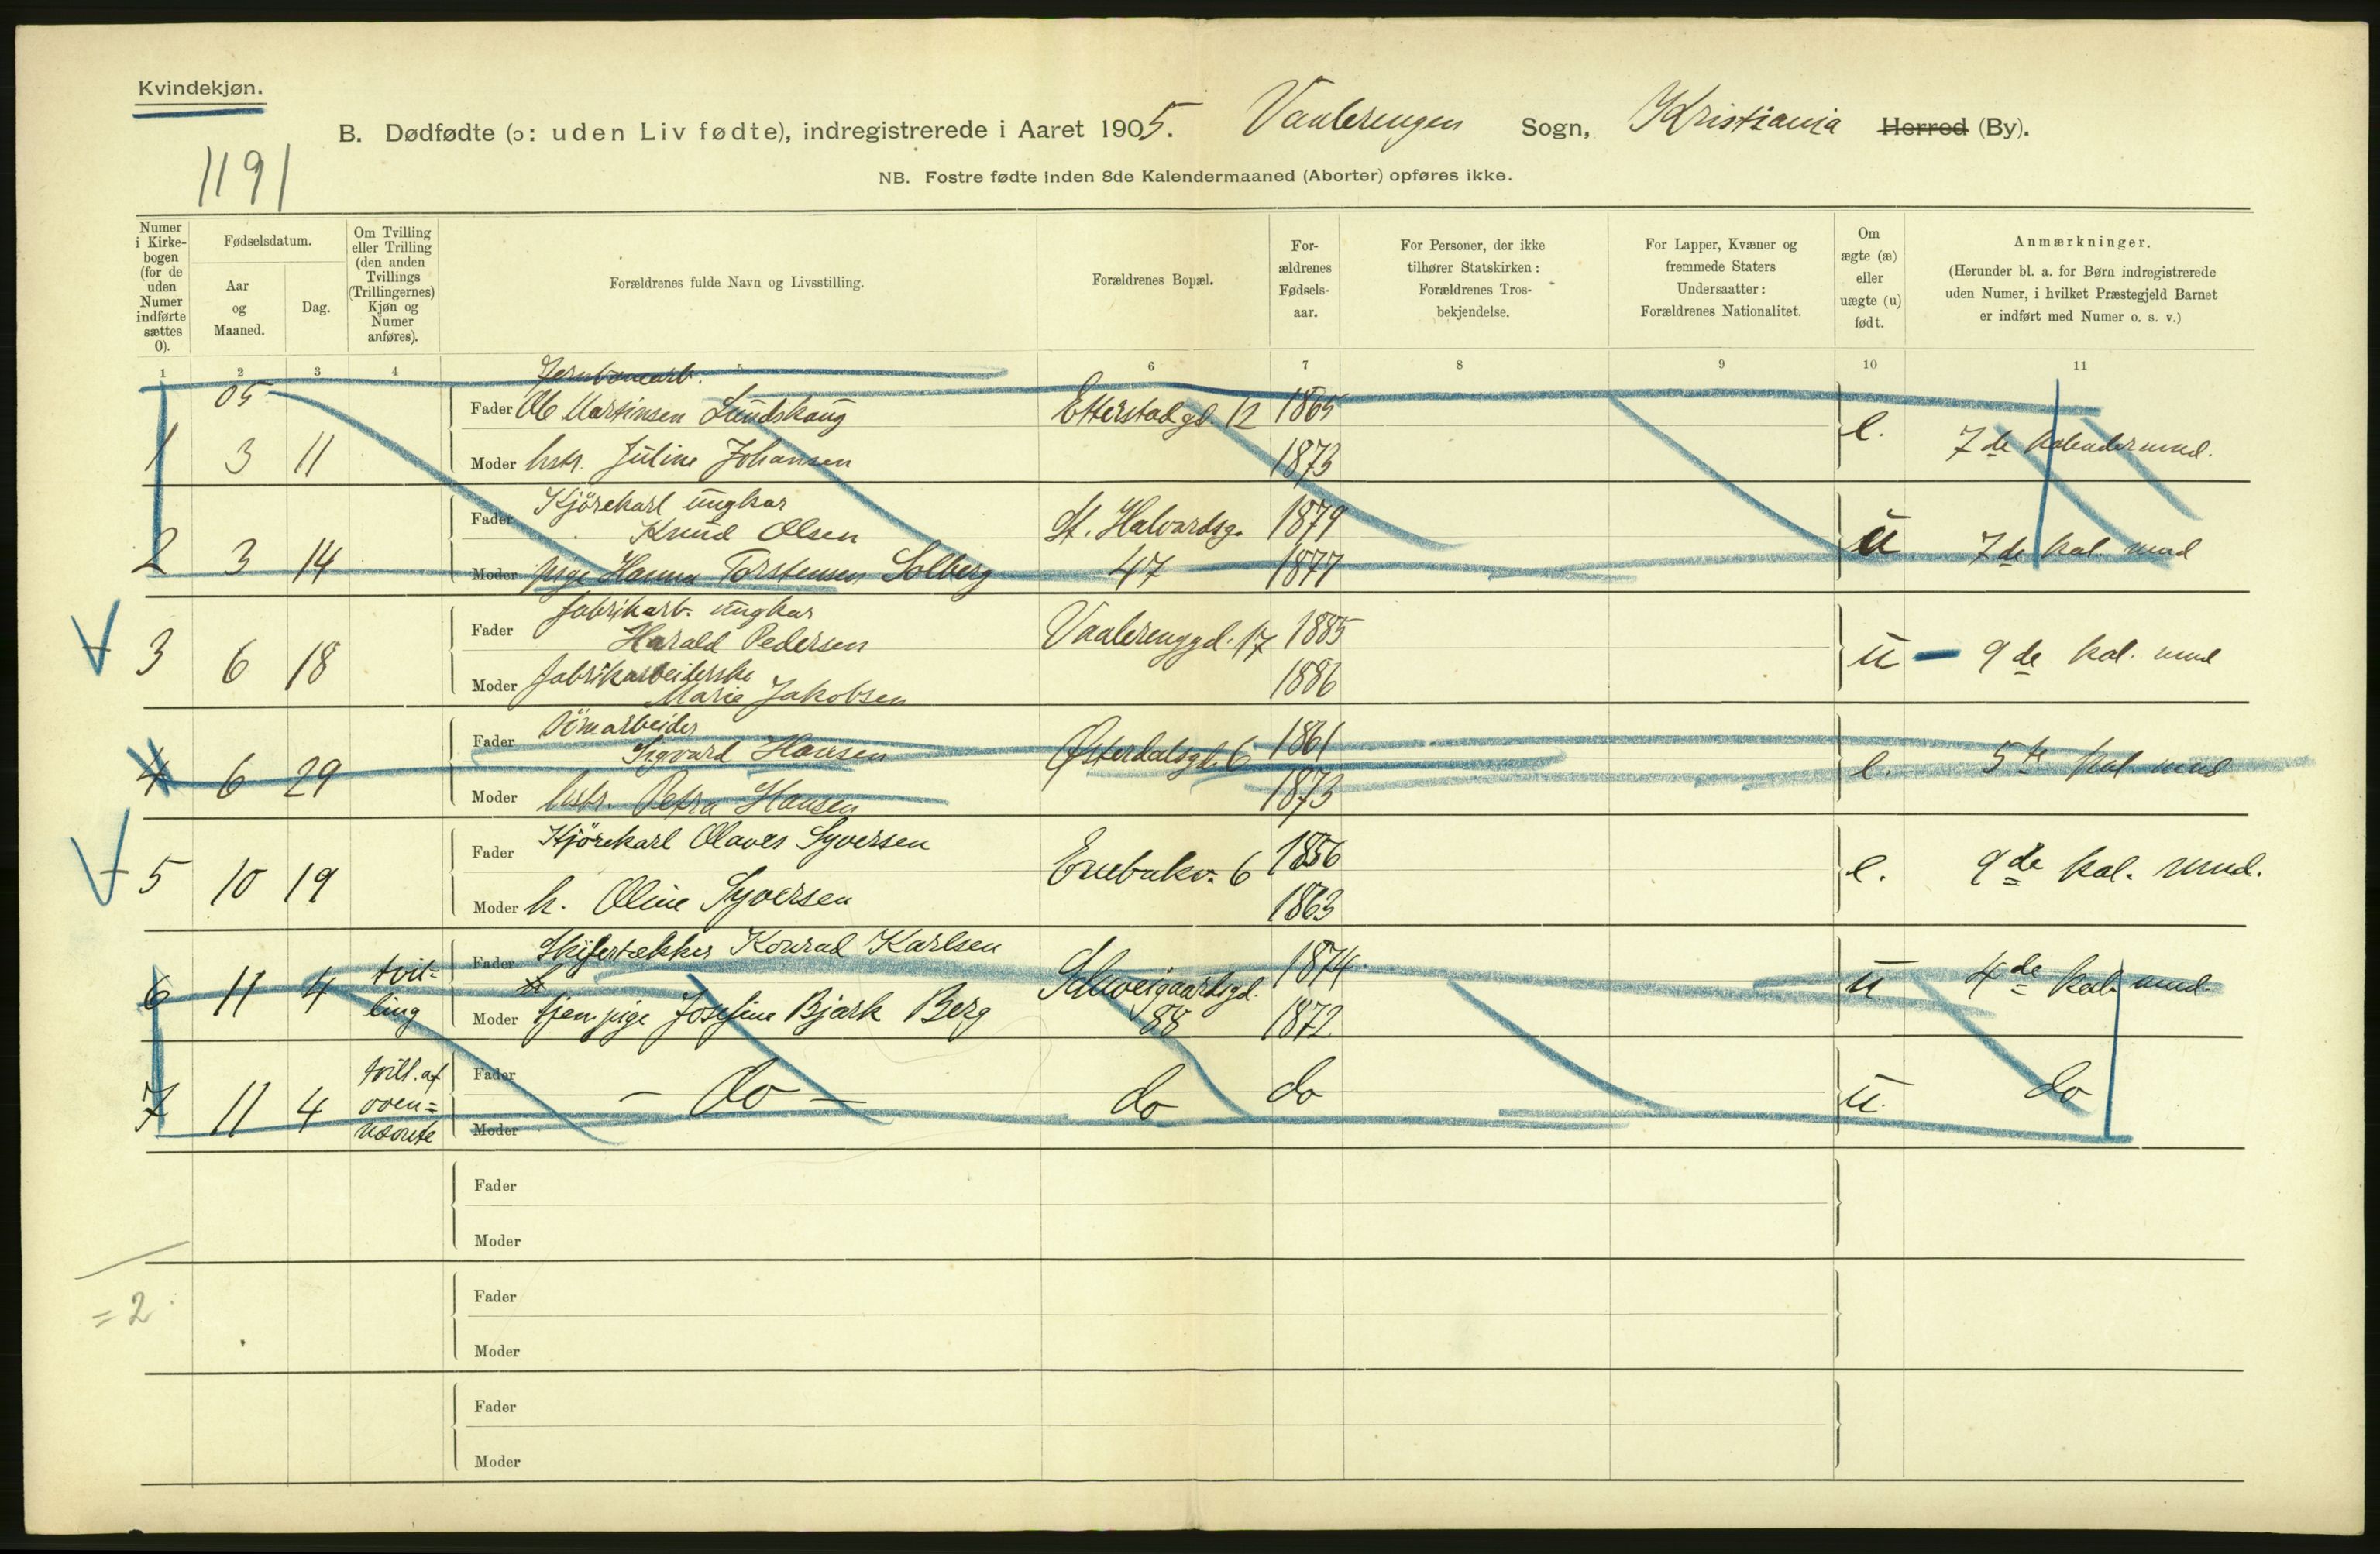 Kvindekjøn.
B. Dødfødte (ɔ: uden Liv fødte), indregistrerede i Aaret 1905. Vaalerengen Sogn, Kristiania Herred (By).
1191
NB. Fostre fødte inden 8de Kalendermaaned (Aborter) opføres ikke.
Numer i Kirke-bogen (for de uden Numer indførte sættes 0).
Fødselsdatum.
Aar og Maaned.
Dag.
Om Tvilling eller Trilling (den anden Tvillings (Trillingernes) Kjøn og Numer anføres).
Forældrenes fulde Navn og Livsstilling.
Forældrenes Bopæl.
For-ældrenes Fødsels-aar.
For Personer, der ikke tilhører Statskirken: Forældrenes Tros-bekjendelse.
For Lapper, Kvæner og fremmede Staters Undersaatter: Forældrenes Nationalitet.
Om ægte (æ) eller uægte (u) født.
Anmærkninger.
(Herunder bl. a. for Børn indregistrerede uden Numer, i hvilket Præstegjeld Barnet er indført med Numer o. s. v.)
1 2 3 4 5 6 7 8 9 10 11
05 Jernbanearb.
Fader Ole Martinsen Lundskaug Etterstadgd. 12 1865
1 3 11 Moder hstr. Juline Johansen 1873 e. 7de kalendermnd.
Kjörekarl ungkar
Fader Knud Olsen St. Halvardsg. 1879
2 3 14 Moder pige Hanna Torstensen Solberg 47 1877 u 7de kal. mnd
fabrikarb. ungkar
Fader Harald Pedersen Vaalerenggd. 17 1885
3 6 18 u - 9de kal. mnd
Moder fabrikarbeiderske
Marie Jakobsen 1886
Fader Tömarbeider
Sigvard Hansen Østerdalsgd. 6 1861
4 6 29 e. 5te kal. mnd
Moder hstr. Petra Hansen 1873
Fader Kjörekarl Olaves Syversen 1856
5 10 19 Enebakv. 6 e. 9de kal. mnd.
Moder h. Oline Syversen 1863
Fader Skifertækker Konrad Karlsen 1874
6 11 4 tvil=ling Schweigaardsgd. 88 u 4de kal. mnd.
Moder tjen. pige Josefine Bjark Berg 1872
7 11 4 tvill. af oven=nævnte Fader - do - do do u. do
Moder
Fader
Moder
Fader
= 2
Moder
Fader
Moder